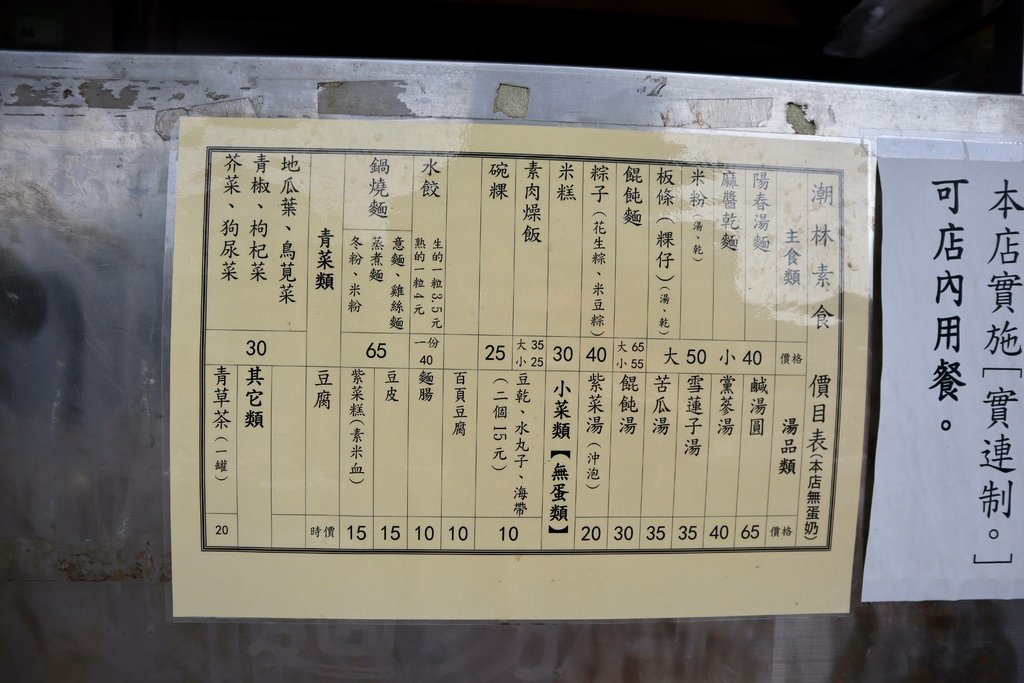 本店實施[實連制。]
可店內用餐。
潮林素食 價目表(本店無蛋奶)
主食類 價格
陽春湯麵
麻醬乾麵
米粉(湯、乾)
板條(粿仔)(湯、乾)
大50 小40
餛飩麵 大65 小55
粽子(花生粽、米豆粽) 40
米糕 30
素肉燥飯 大35 小25
碗粿 25
水餃 生的一粒3.5元 熟的一粒4元 一份40
鍋燒麵 意麵、雞絲麵 蒸煮麵 冬粉、米粉 65
青菜類
地瓜葉、鳥莧菜
青椒、枸杞菜
芥菜、狗尿菜
30
湯品類 價格
鹹湯圓 65
黨蔘湯 40
雪蓮子湯 35
苦瓜湯 35
餛飩湯 30
紫菜湯(沖泡) 20
小菜類【無蛋類】
豆乾、水丸子、海帶
(二個15元) 10
百頁豆腐 10
麵腸 10
豆皮 15
紫菜糕(素米血) 15
豆腐 時價
其它類
青草茶(一罐) 20